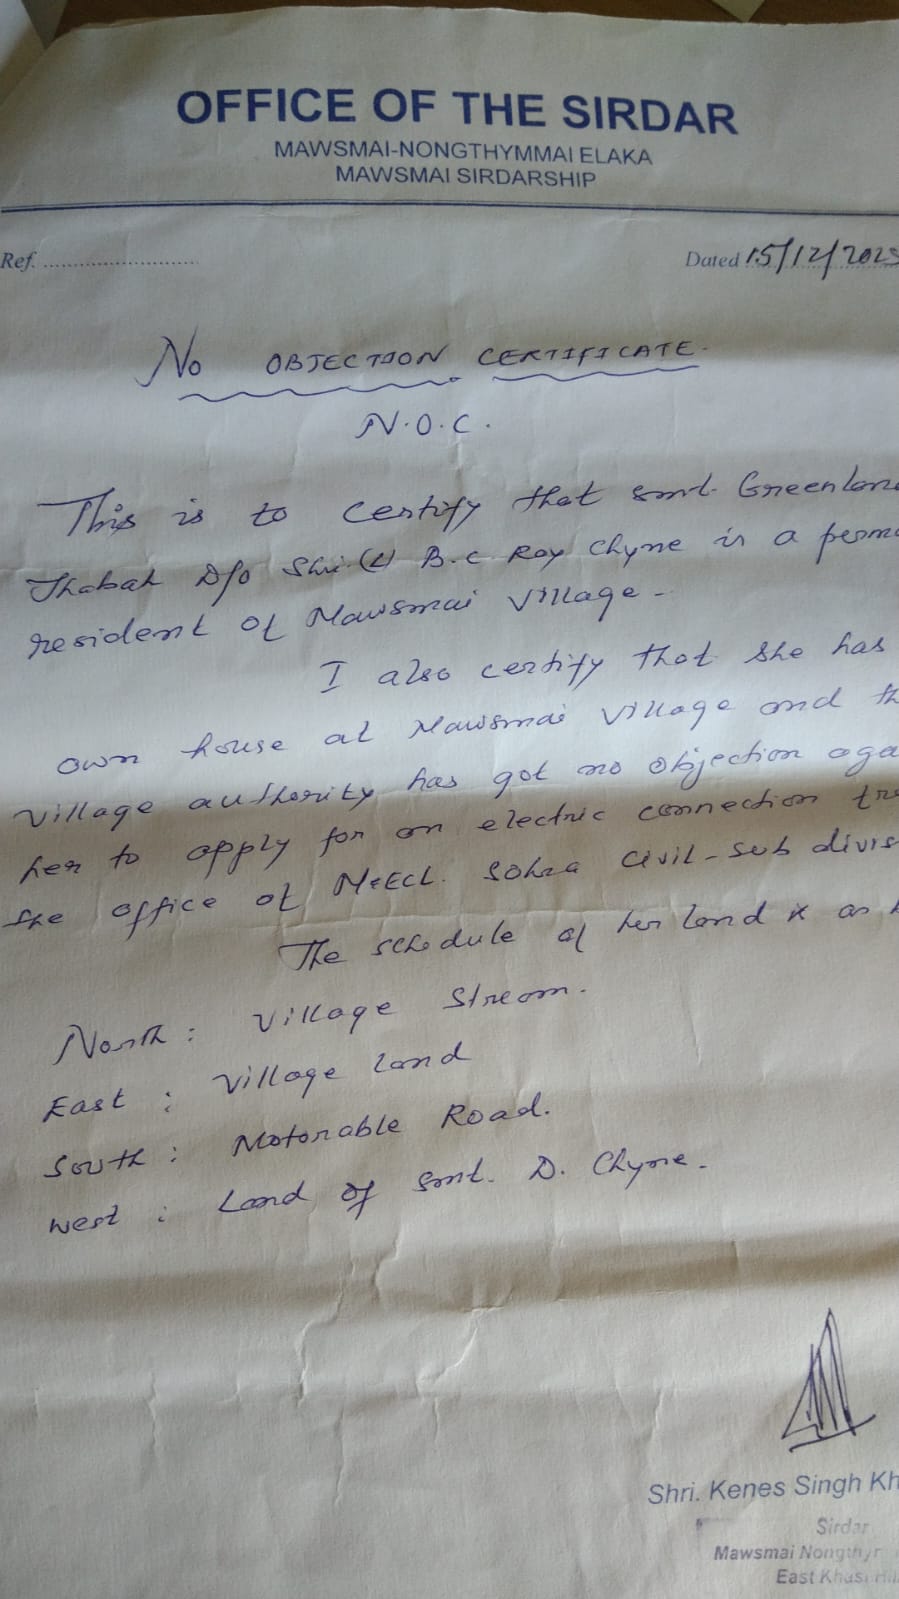 OFFICE OF THE SIRDAR
MAWSMAI-NONGTHYMMAI ELAKA
MAWSMAI SIRDARSHIP
Ref. ..............................
Dated 15/12/2025
No OBJECTION CERTIFICATE.
N.O.C.
This is to certify that smt. Greenlone
Thabah D/o Shri (L) B.C. Roy Chyne is a perma
resident of Mawsmai Village.
I also certify that she has
own house at Mawsmai Village and th
Village authority has got no objection aga
her to apply for an electric connection
the office of MeECL. Sohra Civil-sub divis
The schedule of her land is as
North : Village Stream.
East : Village land
South : Motorable Road.
West : Land of Smt. D. Chyne.
Shri. Kenes Singh Kh
Sirdar
Mawsmai Nongthyr
East Khasi Hil